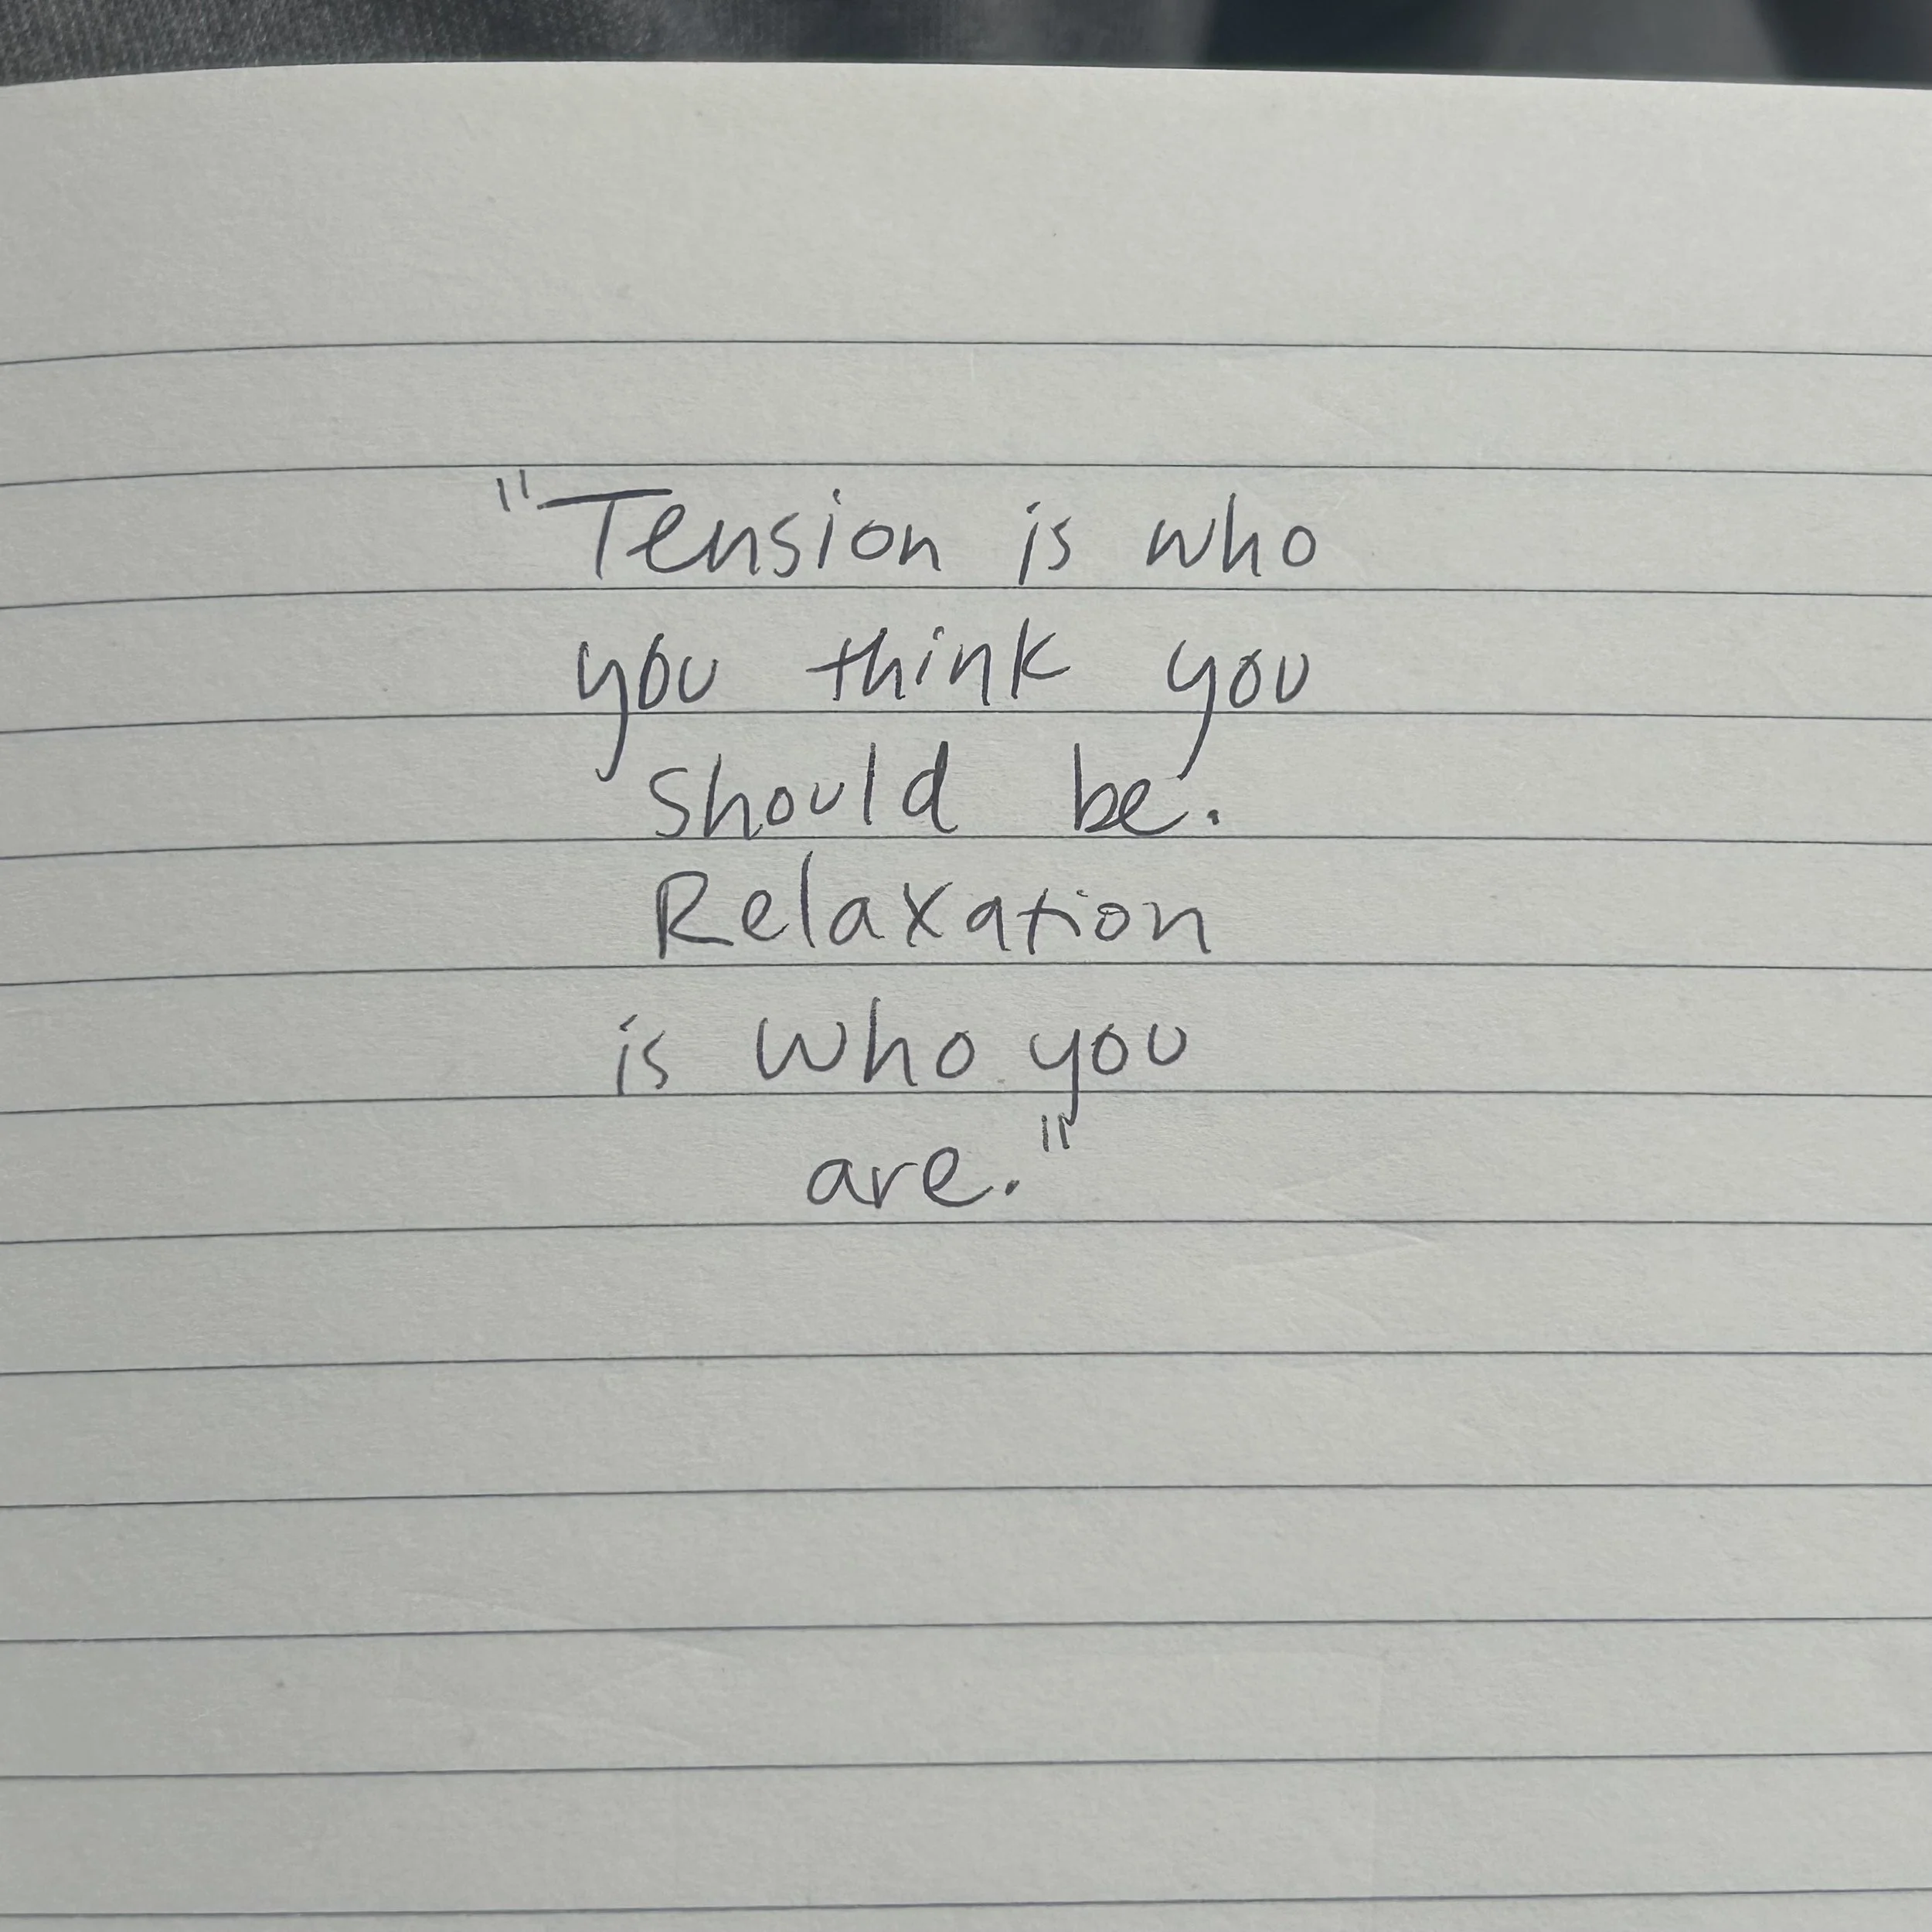 "Tension is who
you think you
should be.
Relaxation
is who you
are."